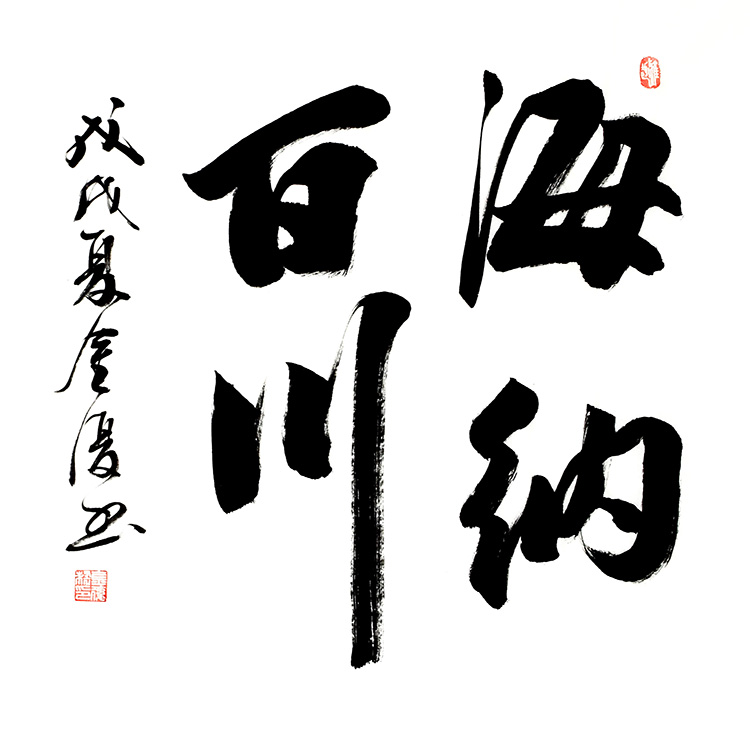 海纳
百川
戊戌夏金书